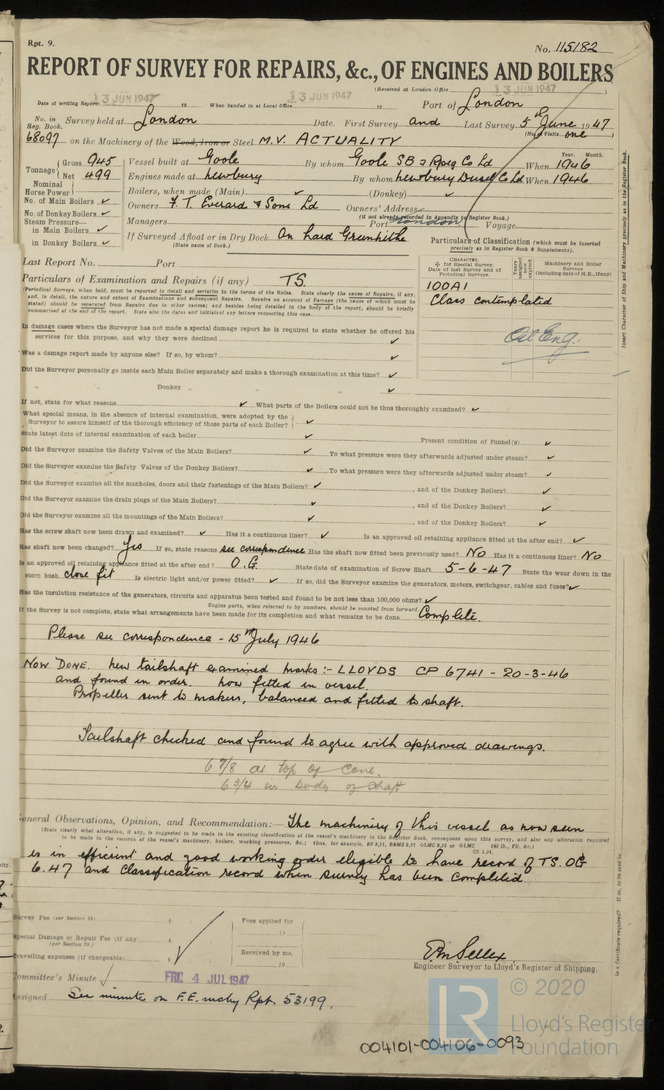 Rpt. 9.
No. 115182
REPORT OF SURVEY FOR REPAIRS, &c., OF ENGINES AND BOILERS
(Received at London Office
Date of writing Report 13 JUN 1947 19 When handed in at Local Office 13 JUN 1947 19 Port of London
No. in Reg. Book. Survey held at London Date. First Survey and Last Survey 5th June 1947
(No. of Visits one)
68097 on the Machinery of the Wood, Iron or Steel M.V. ACTUALITY
Tonnage Gross 945 Vessel built at Goole By whom Goole SB & Rpg Co Ld When 1946
Year. Month.
Net 499 Engines made at Newbury By whom Newbury Diesel Co Ld When 1946
Nominal Horse Power Boilers, when made (Main) ✓ (Donkey) ✓
No. of Main Boilers ✓ Owners F. T. Everard & Sons Ld Owners' Address
(if not already recorded in Appendix to Register Book.)
No. of Donkey Boilers ✓ Managers Port London Voyage
Steam Pressure—
in Main Boilers ✓ If Surveyed Afloat or in Dry Dock On hard Greenhithe
(State name of Dock.)
in Donkey Boilers ✓
Particulars of Classification (which must be inserted precisely as in Register Book & Supplements).
Last Report No. Port
CHARACTER.
✠ for Special Survey.
Date of last Survey and of Periodical Surveys.
Machinery and Boiler Surveys
(including date of N.B., if any)
Particulars of Examination and Repairs (if any) TS.
100A1
Class contemplated
Oil Eng.
In damage cases where the Surveyor has not made a special damage report he is required to state whether he offered his
services for this purpose, and why they were declined ✓
Was a damage report made by anyone else? If so, by whom? ✓
Did the Surveyor personally go inside each Main Boiler separately and make a thorough examination at this time? ✓
" Donkey " ✓
If not, state for what reasons ✓ What parts of the Boilers could not be thus thoroughly examined? ✓
What special means, in the absence of internal examination, were adopted by the
Surveyor to assure himself of the thorough efficiency of those parts of each Boiler? ✓
State latest date of internal examination of each boiler ✓ Present condition of funnel(s) ✓
Did the Surveyor examine the Safety Valves of the Main Boilers? ✓ To what pressure were they afterwards adjusted under steam? ✓
Did the Surveyor examine the Safety Valves of the Donkey Boilers? ✓ To what pressure were they afterwards adjusted under steam? ✓
Did the Surveyor examine all the manholes, doors and their fastenings of the Main Boilers? ✓ , and of the Donkey Boilers? ✓
Did the Surveyor examine the drain plugs of the Main Boilers? ✓ , and of the Donkey Boilers? ✓
Did the Surveyor examine all the mountings of the Main Boilers? ✓ , and of the Donkey Boilers? ✓
Has the screw shaft now been drawn and examined? ✓ Has it a continuous liner? ✓ Is an approved oil retaining appliance fitted at the after end? ✓
Has shaft now been changed? Yes If so, state reasons see correspondence Has the shaft now fitted been previously used? No Has it a continuous liner? No
Is an approved oil retaining appliance fitted at the after end? O.G. State date of examination of Screw Shaft 5-6-47 State the wear down in the
stern bush close fit Is electric light and/or power fitted? ✓ If so, did the Surveyor examine the generators, motors, switchgear, cables and fuses ✓
Has the insulation resistance of the generators, circuits and apparatus been tested and found to be not less than 100,000 ohms? ✓
Engine parts, when referred to by numbers, should be counted from forward.
If the Survey is not complete, state what arrangements have been made for its completion and what remains to be done Complete.
Please see correspondence - 15th July 1946
NOW DONE. New tailshaft examined marks :- LLOYDS CP 6741 - 20-3-46
and found in order. Now fitted in vessel.
Propeller sent to makers, balanced and fitted to shaft.
Tailshaft checked and found to agree with approved drawings.
6 7/8 at top of cone.
6 3/4 in body of shaft
General Observations, Opinion, and Recommendation:— The machinery of this vessel as now seen
is in efficient and good working order eligible to have record of TS. OG
6.47 and classification record when survey has been completed
Survey Fee (per Section 29) £ Fees applied for
Special Damage or Repair Fee (if any) £ 19
(per Section 29.)
Travelling expenses (if chargeable) £ Received by me,
19
Engineer Surveyor to Lloyd's Register of Shipping.
Committee's Minute FRI. 4 JUL 1947
Assigned See minute on F.E. mchy Rpt. 53199.
© 2020
LR
Lloyd's Register
Foundation
004101-004106-0093